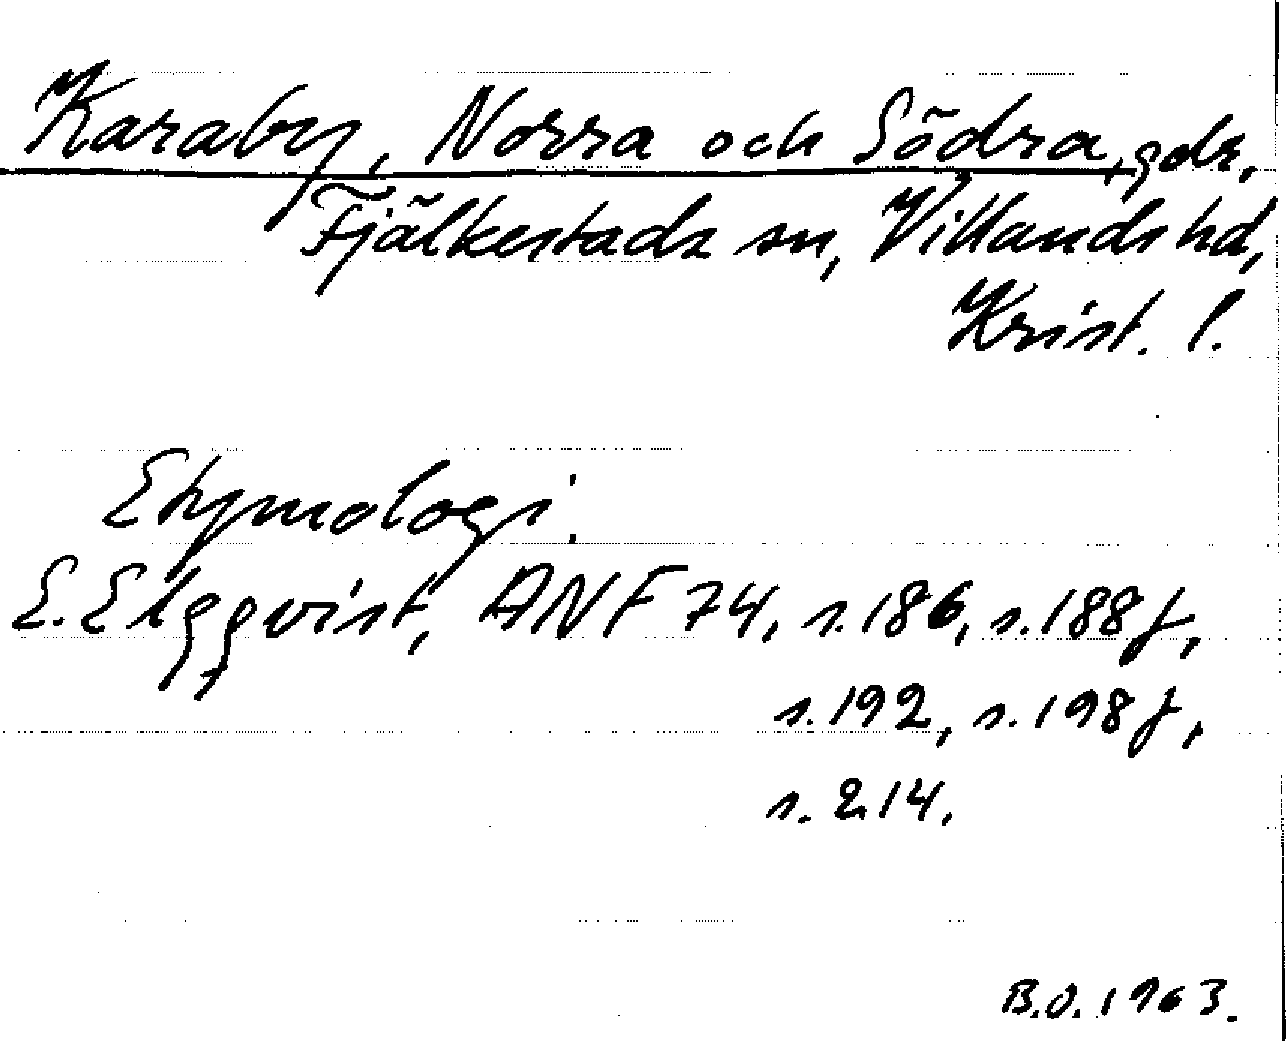 Karaby, Norra och Södra, gdr,
Fjälkestads sn, Villands hd,
Krist. l.
Etymologi.
E. Elgqvist, ANF 74, s. 186, s. 188 f,
s. 192, s. 198 f,
s. 214.
B.O. 1963.